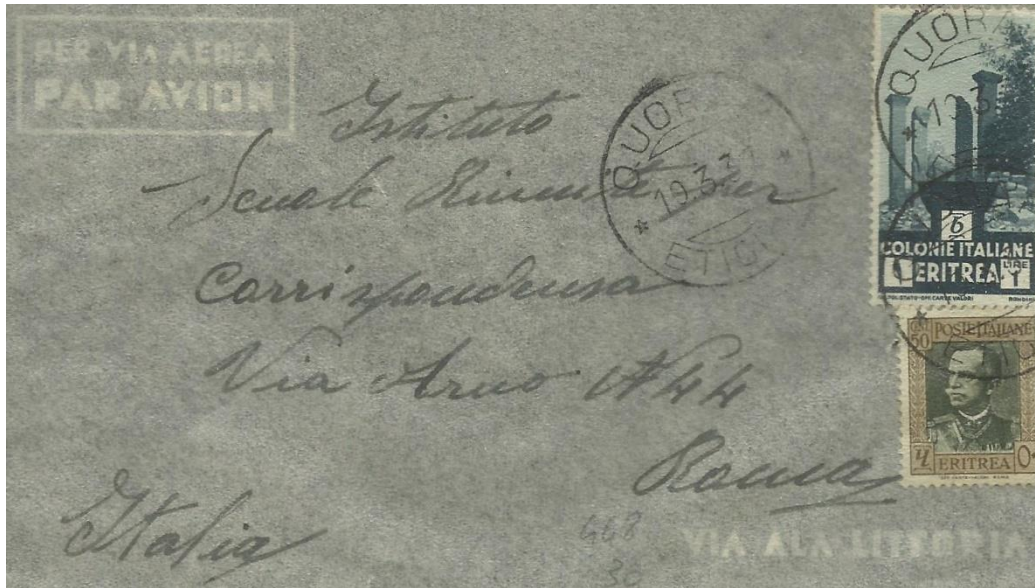 PER VIA AEREA
PAR AVION
Istituto
Scuole Riunite per
Corrispondenza
Via Arno N° 44
Roma
Italia
QUORAM
* 19.3.37 *
ETIOPIA
QUORA
* 19.3
6
COLONIE ITALIANE
ERITREA
LIRE 1
50
POSTE ITALIANE
ERITREA
468
30
VIA ALA LITTORIA